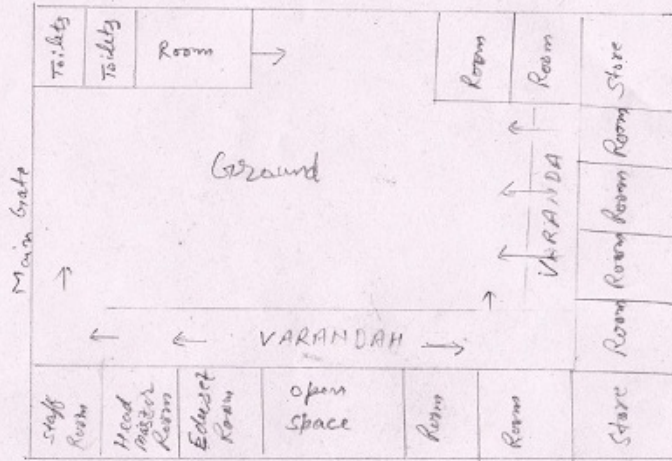 Toilets
Toilets
Room
Room
Room
Store
Main Gate
Ground
VARANDA
Room
Room
Room
Room
VARANDAH
Staff
Room
Head
Master
Room
Eduset
Room
open
space
Room
Room
Store